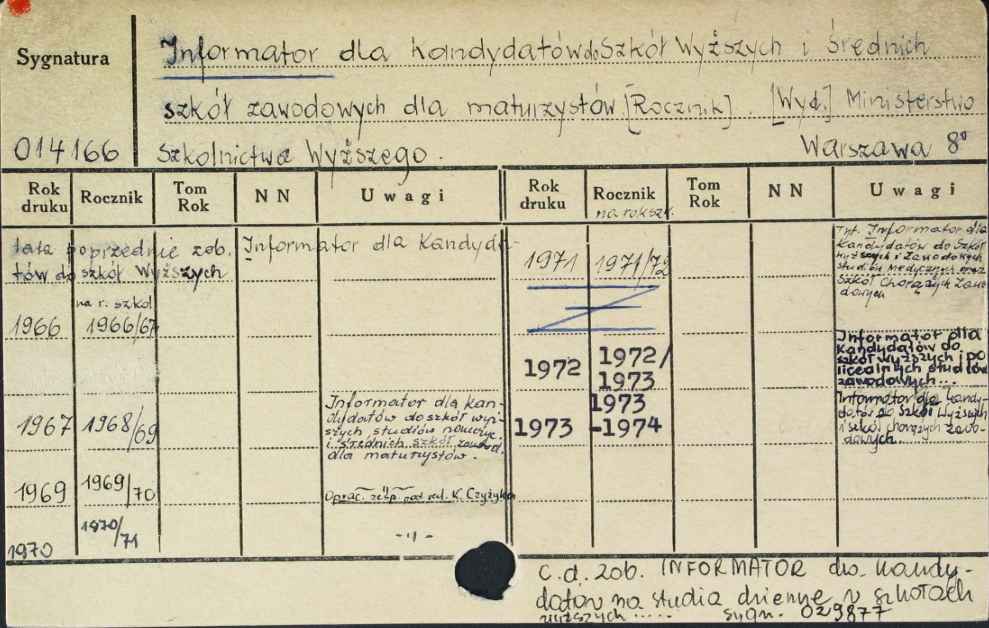 Sygnatura
Informator dla kandydatów do Szkół Wyższych i średnich
szkół zawodowych dla maturzystów [Rocznik]. [Wyd.] Ministerstwo
014166 Szkolnictwa Wyższego. Warszawa 8°
Rok druku Rocznik Tom Rok N N Uwagi
Rok druku Rocznik na rok szk. Tom Rok N N Uwagi
lata poprzednie zob. Informator dla Kandyda-
tów do szkół Wyższych
na r. szkol
1966 1966/67
1967 1968/69
Informator dla kan-
dydatów do szkół wyż-
szych studiów
i średnich szkół zawod.
dla maturzystów.
1969 1969/70 Oprac. zesp. pod red. K. Czyżyka
1970 1970/71 -"-
1971 1971/72
Tyt. Informator dla
Kandydatów do Szkół
Wyższych i Zawodowych
Studiów Medycznych oraz
Szkół Chorążych Zawo-
dowych
1972 1972/
1973
Informator dla
kandydatów do
szkół wyższych i po
licealnych studiów
zawodowych...
1973 1973
-1974
Informator dla kandy-
datów do Szkół Wyższych
i szkół chorążych zawo-
dowych.
c.d. zob. INFORMATOR dla kandy-
datów na studia dzienne w szkołach
wyższych ..... sygn. 029877